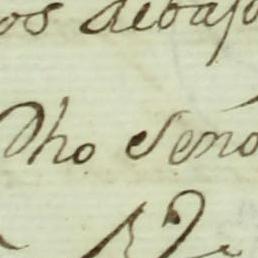 os debajo
Dho Seño